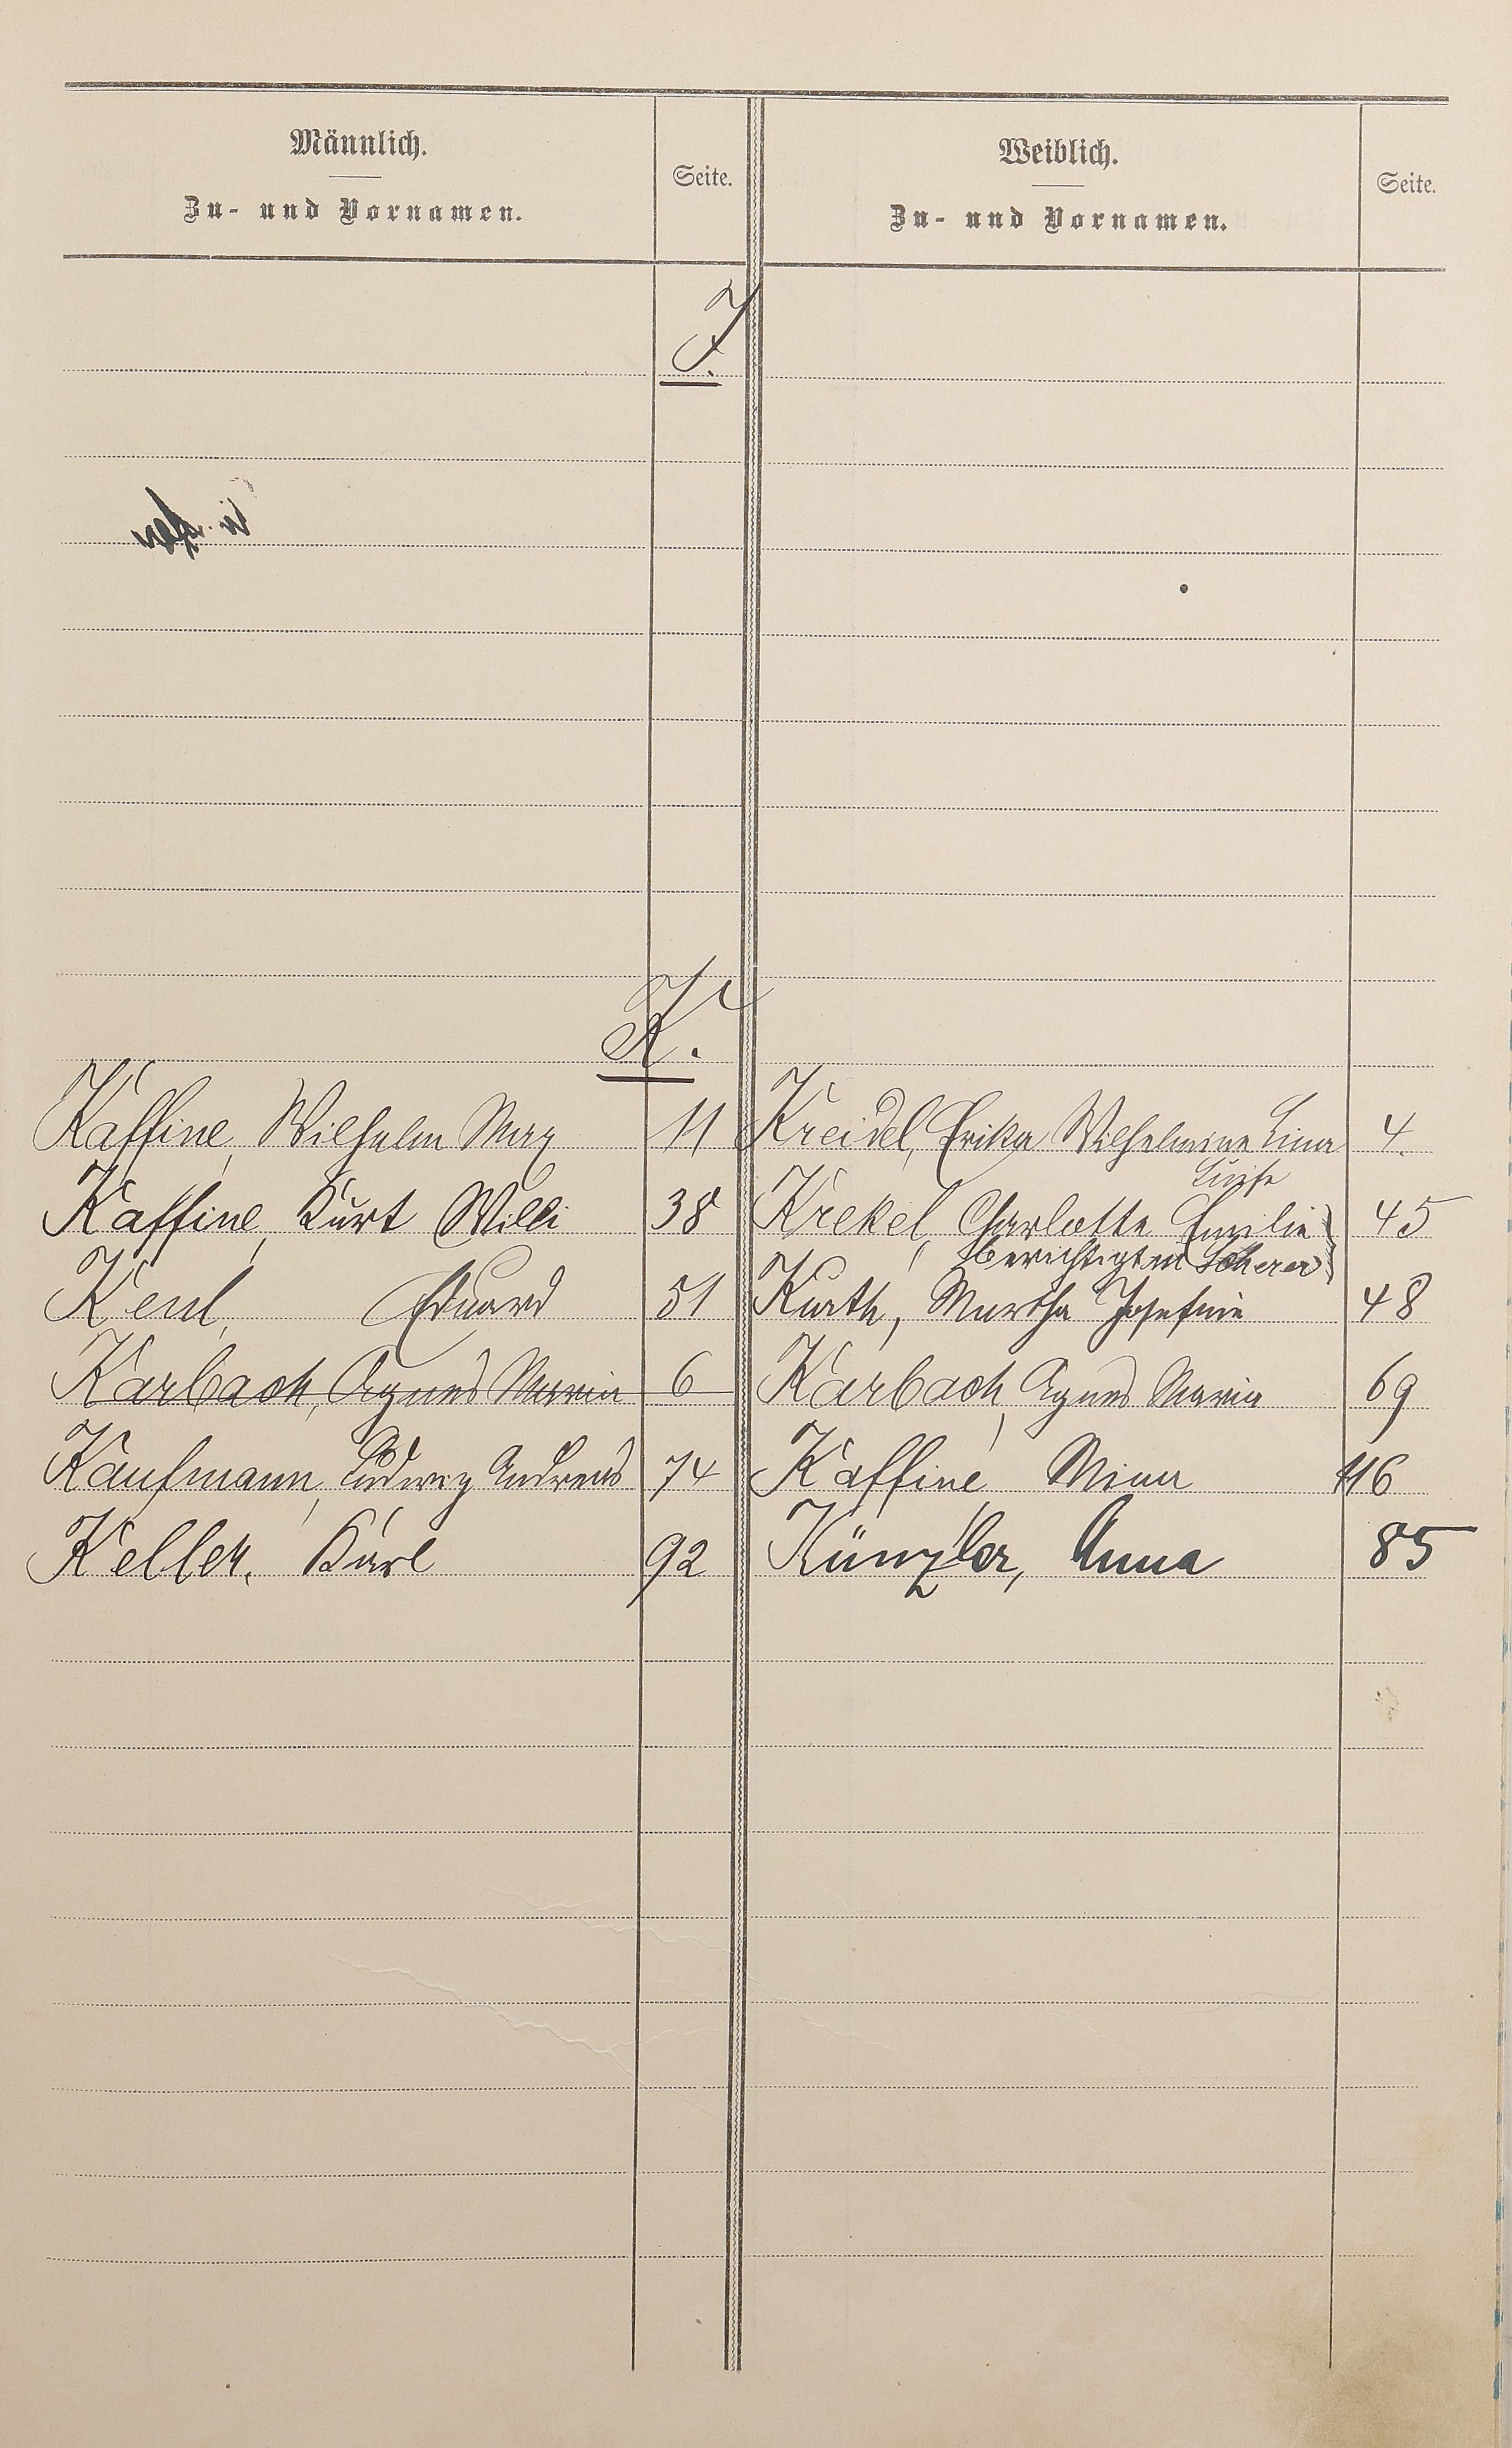 Männlich.
Zu- und Vornamen.
Seite.
Weiblich.
Zu- und Vornamen.
Seite.
J.
K.
Kaffine, Wilhelm Max 11
Kreidel, Erika Wilhelmine Lina 4.
Luise
Kaffine, Kurt Willi 38
Krekel, Charlotte Emilie 45
berichtigt in Scherer
Keul, Eduard 51
Kurth, Martha Josefine 48
Karbach, Agnes Maria 6
Karbach, Agnes Maria 69
Kaufmann, Ludwig Andreas 74
Kaffine, Mina 116
Keller, Karl 92
Künzler, Anna 85